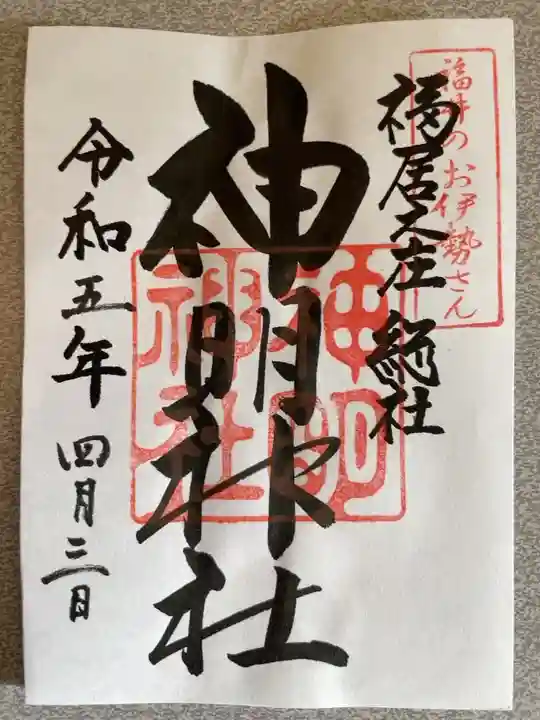 福井のお伊勢さん
福居之庄 総社
神明神社
神明神社
令和五年 四月三日